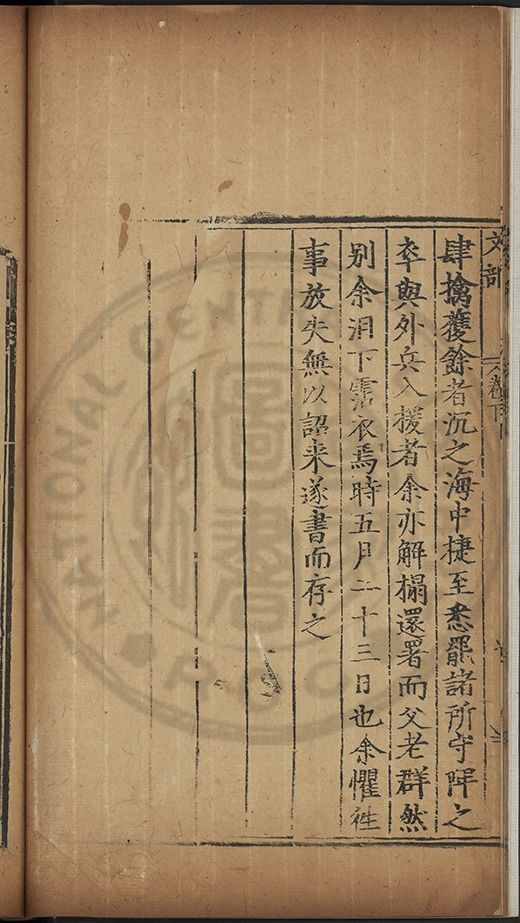 文部
卷下
肆擒獲餘者沉之海中捷至悉罷諸所守陴之
卒與外兵入援者余亦解榻還署而父老群然
别余泪下霑衣焉時五月二十三日也余懼往
事放失無以詔来遂書而存之